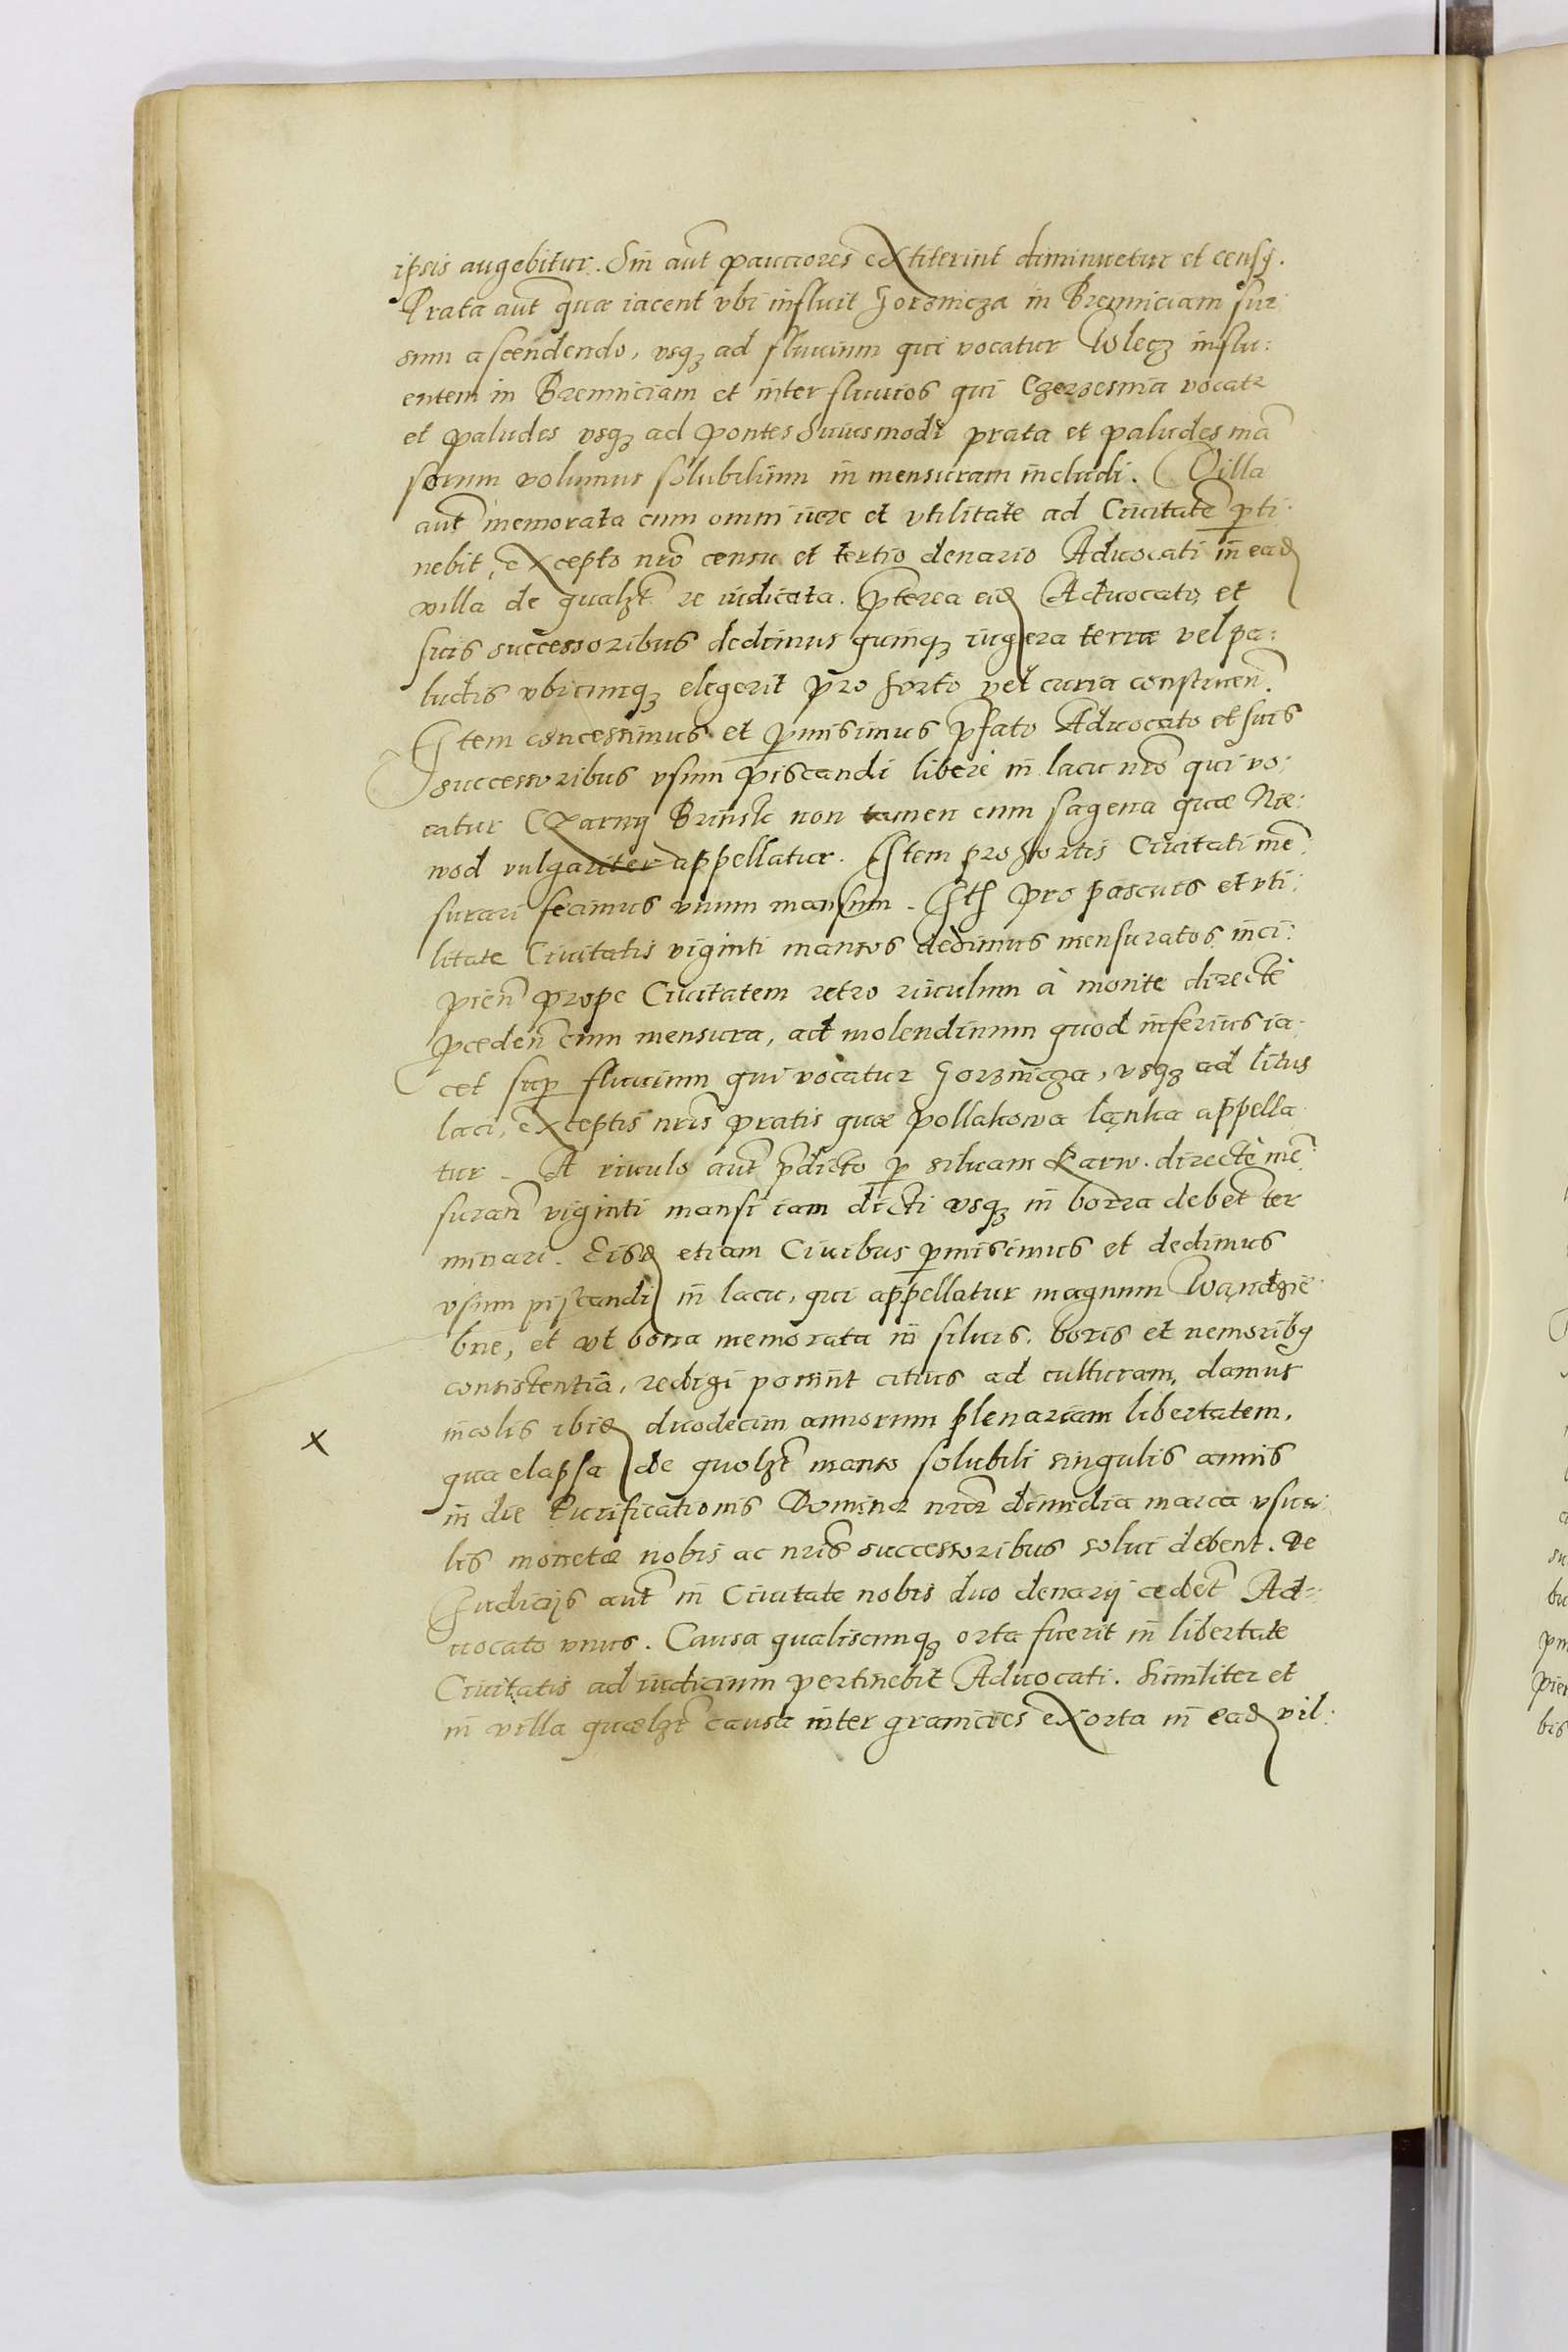 ipsis augebitur. Sin aut̃ pauciores extiterint diminuetur et censꝰ.
Prata aut̃ quæ iacent vbi influit Gorznicza in Brenniciam sur
sum ascendendo, vsqꝫ ad fluuium qui vocatur Wlecz influ:
entem in Brenniciam et inter fluuios qui Czerzesnia vocatᷣ
et paludes vsqꝫ ad pontes huiusmodi prata et paludes mã
sorum volumus solubilium in mensuram includi. Villa
aut̃ memorata cum omni iure et vtilitate ad Ciuitatẽ ꝑti:
nebit, excepto nr̃o censu et tertio denario Aduocati in eadꝫ
villa de qualꝫt̃ re iudicata. P̃terea eidꝫ Aduocato et
suis successoribus dedimus quinqꝫ iugera terræ vel pa:
ludis vbicunqꝫ elegerit pro horto vel curia construen̄.
Item concessimus et ꝑmisimus p̃fato Aduocato et suis
successoribus vsum piscandi liberè in lacu nr̃o qui vo:
catur Czarny Brinsk non tamen cum sagena quæ Nie:
wod vulgariter appellatur. Item pro hortis Ciuitati mẽ:
surari fecimus vnum mansum. Itꝫ pro pascuis et vti:
litate Ciuitatis viginti mansos dedimus mensuratos inci:
pien̄ prope Ciuitatem retro riuulum à monte directè
ꝓceden̄ cum mensura, ad molendinum quod inferius ia:
cet suꝑ fluuium qui vocatur Gorznicza, vsqꝫ ad litus
laci, exceptis nr̃is pratis quæ pollakowa łąnka appella
tur. A riuulo aut̃ p̃dicto ꝑ siluam Karw. directè mẽ:
suran̄ viginti mansi iam dicti vsqꝫ in borra debet̃ ter
minari. Eisdꝫ etiam Ciuibus ꝑmisimus et dedimus
vsum piscandi in lacu, qui appellatur magnum Wądzie:
bne, et vt bona memorata in siluis, boris et nemoribꝰ
consistentiã, redigi possint citius ad culturam, damus
incolis ibidꝫ duodecim annorum plenariam libertatem,
qua elapsa de quolꝫt̃ manso solubili singulis annis
in die Purificationis Dominæ nr̃æ dimidia marca vsua:
lis monetæ nobis ac nr̃is successoribus solui debent. De
Iudicijs aut̃ in Ciuitate nobis duo denarij cedet̃ Ad=
uocato vnus. Causa qualiscunqꝫ orta fuerit in libertate
Ciuitatis ad iudicium pertinebit Aduocati. Similiter et
in villa quælꝫt̃ causa inter granicies exorta in eadꝫ vil: